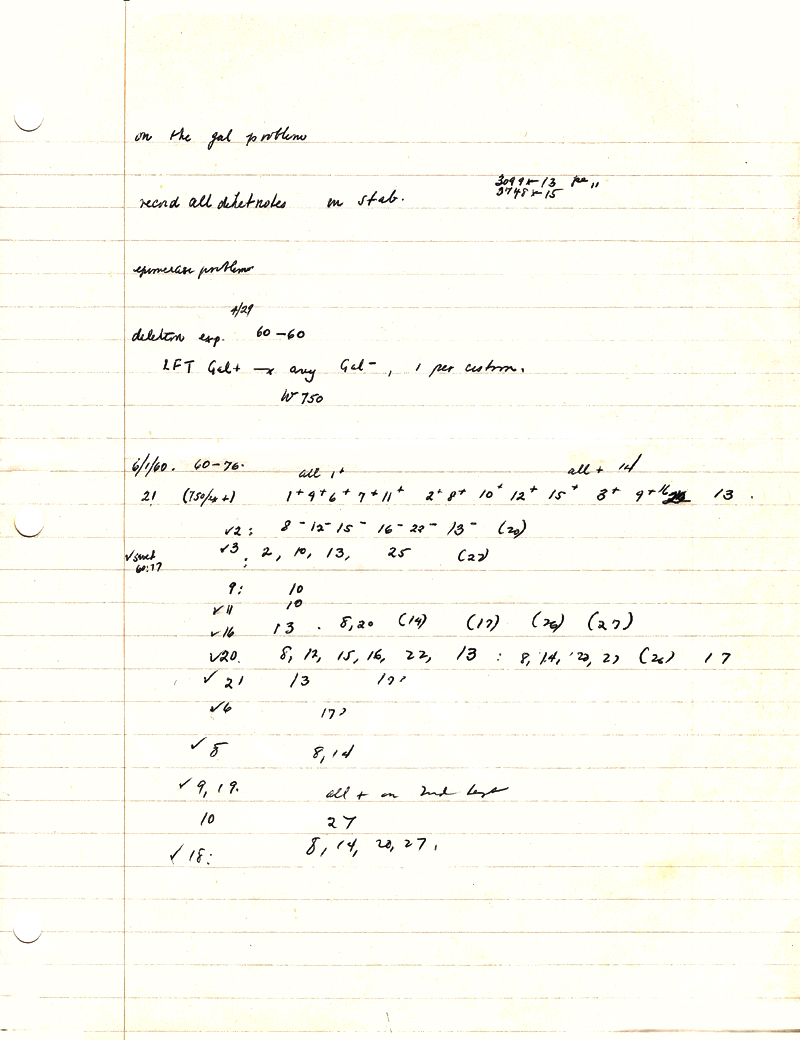 on the gal problem
3099 x 13
3748 x 15
record all deletnotes on stab.
epimerase problem
4/29
deletion exp. 60-60
LFT Gal+ -x any Gal-, 1 per custom.
W 750
6/1/60. 60-76. all 1+ all + 14
21 (750/4+) 1+ 9+ 6+ 7+ 11+ 2+ 8+ 10+ 12+ 15+ 3+ 9+ 16 13.
✓2: 8- 12- 15- 16- 22- 13- (20)
✓3: 2, 10, 13, 25 (22)
60:77
9: 10
✓11 10
✓16 13. 8,20 (14) (17) (26) (27)
✓20. 8, 12, 15, 16, 22, 13 : 8, 14, 20, 27 (26) 17
✓ 21 13 17?
✓6 17?
✓ 8 8, 14
✓ 9, 19. all + on 2nd test
10 27
✓ 18: 8, 14, 20, 27.